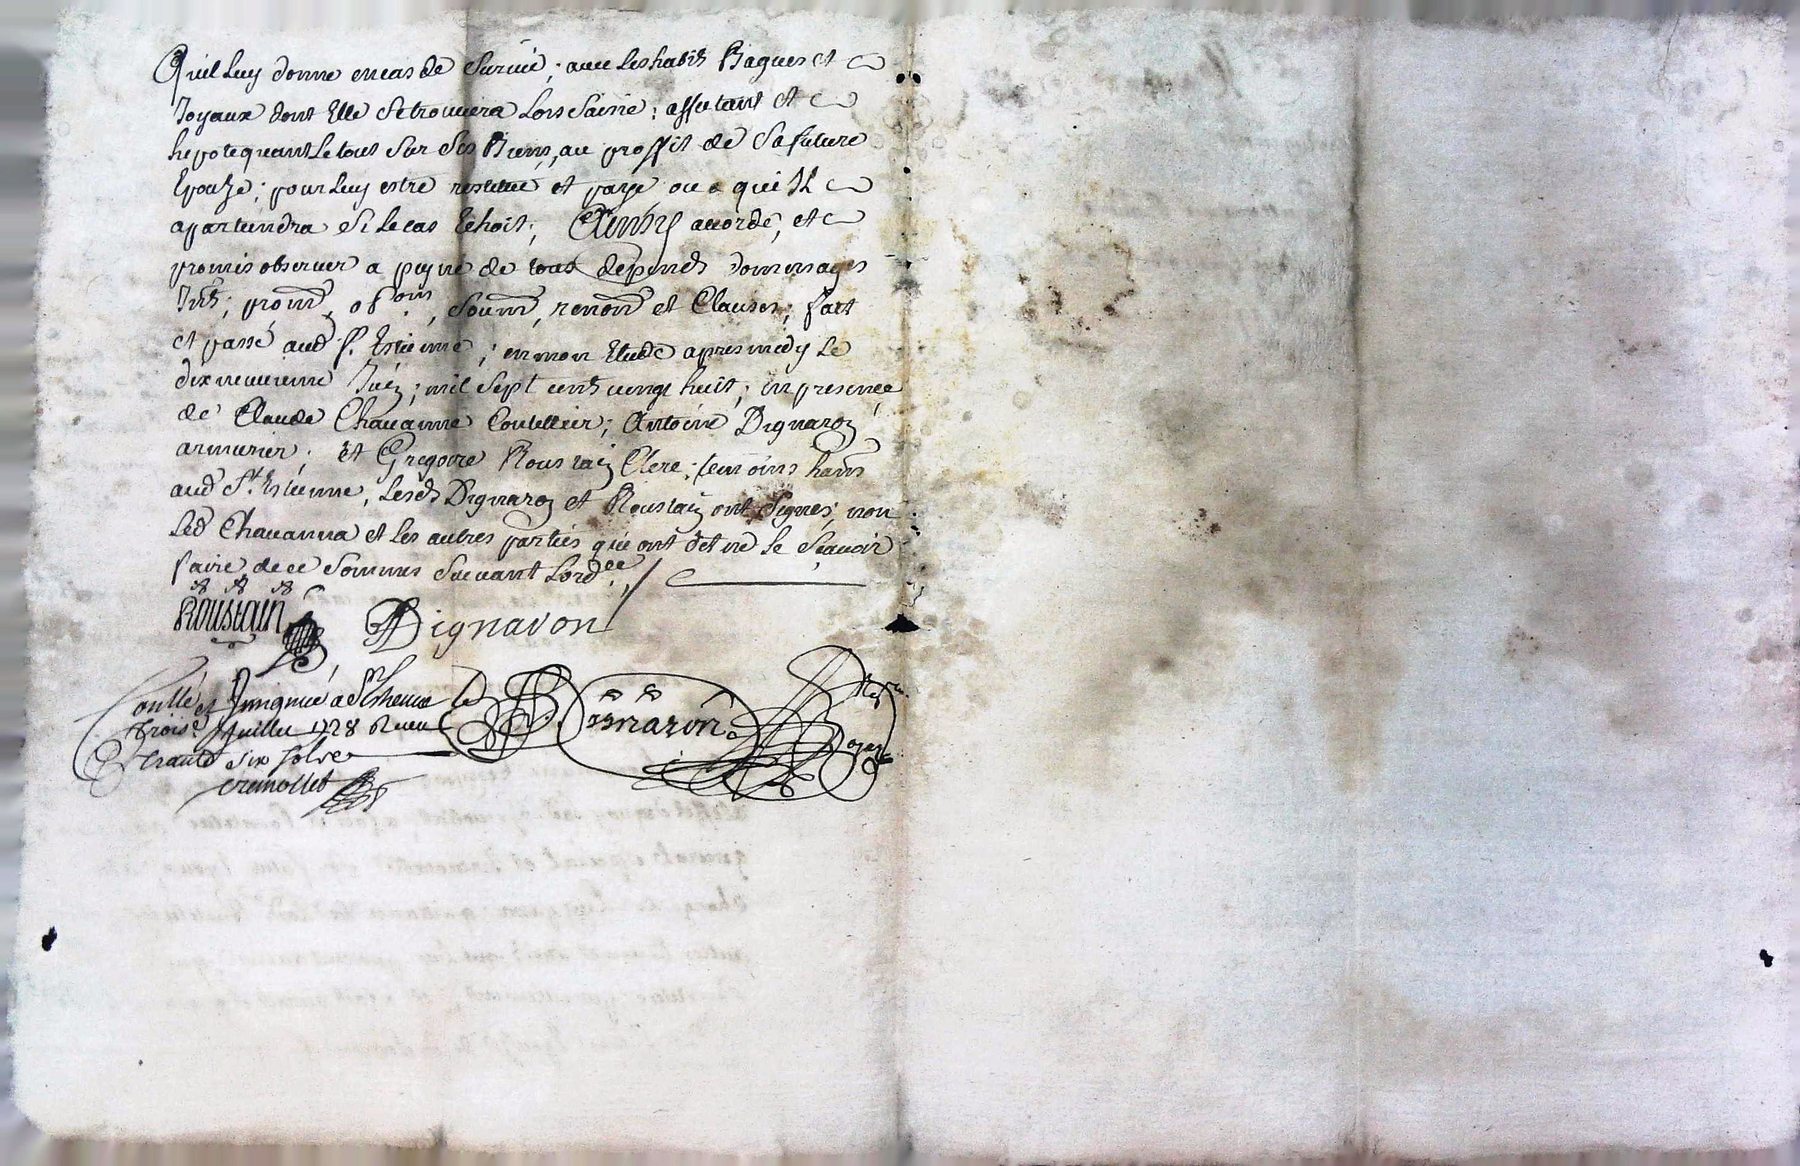 Quil luy donne en cas de Survie; avec Les habits Bagues et
Joyaux dont Elle Se trouvera Lors Saisie; affectant et
hypotequant Le tout Sur Ses Biens, au proffit de Sa future
Epouze; pour Luy estre restitué et payé ou a qui Il
apartiendra Si Le cas Echoit; Ainsy accordé, et
promis observer a peyne de tous depends dommages
Intts; promn, obons, Soumn, renonn et Clauses; fait
et passé aud St. Estienne; en mon Etude apres midy Le
dix neuvieme Juin; mil Sept cents vingt huit; en presence
de Claude Chavanne Coutellier; Antoine Dignaron
armurier; et Gregoire Roustain Clerc; temoins hans
aud St. Estienne, Lesds Dignaron et Roustain ont Signés; non
Led Chavanna et Les autres parties qui ont dit ne le Sçavoir
faire de ce Sommés Suivant Lordce
Roustain Dignaron
Conllé et Insignué a St Etienne le
Trois Juillet 1728 Receu
trante six solz